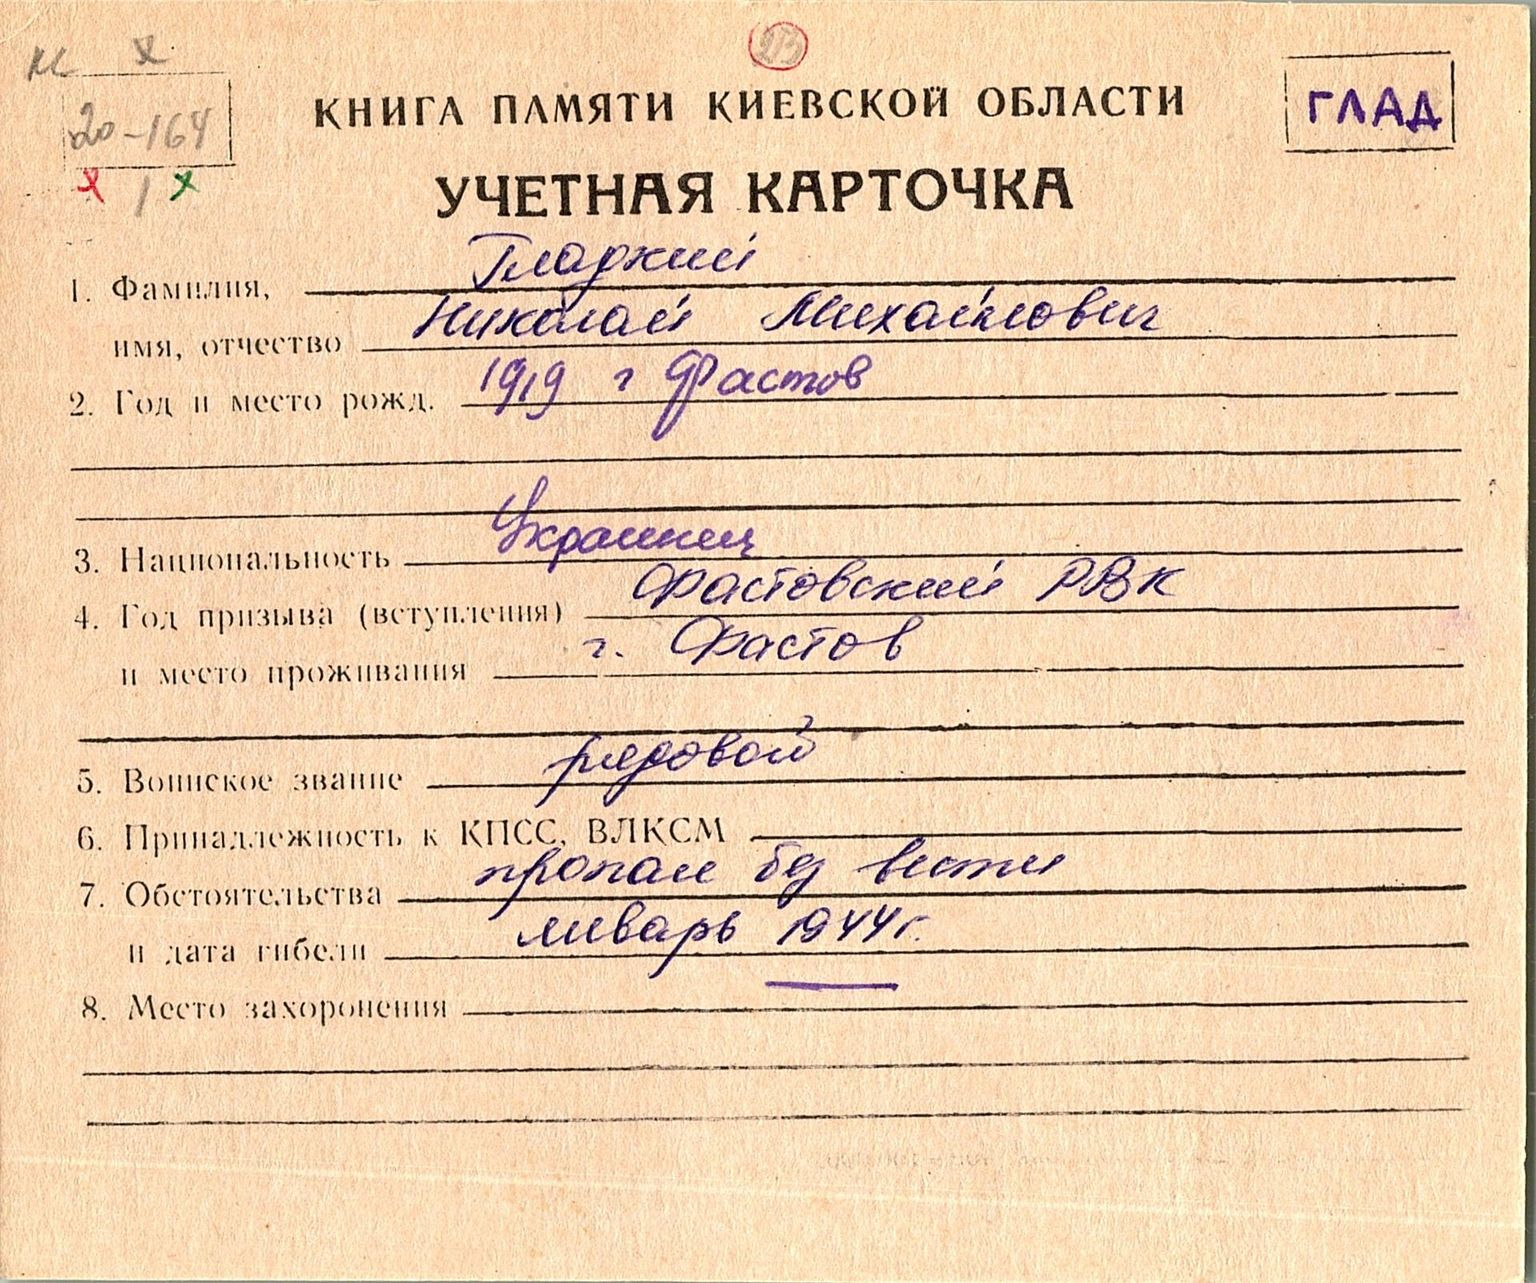 20-164
ГЛАД
КНИГА ПАМЯТИ КИЕВСКОЙ ОБЛАСТИ
УЧЕТНАЯ КАРТОЧКА
1. Фамилия, Гладкий
имя, отчество Николай Михайлович
2. Год и место рожд. 1919 г Фастов
3. Национальность Украинец
4. Год призыва (вступления) Фастовский РВК
и место проживания г. Фастов
5. Воинское звание рядовой
6. Принадлежность к КПСС, ВЛКСМ
7. Обстоятельства пропал без вести
и дата гибели январь 1944 г.
8. Место захоронения